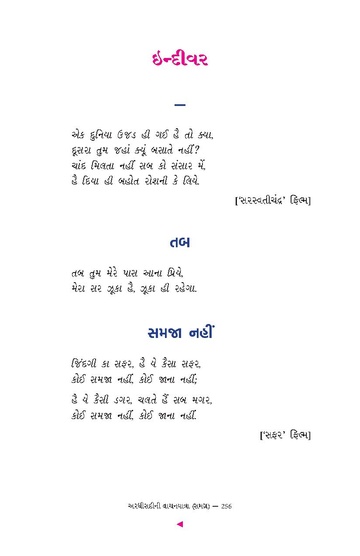 ઇન્દીવર
—
એક દુનિયા ઉજડ હી ગઈ હૈ તો ક્યા,
દૂસરા તુમ જહાં ક્યૂં બસાતે નહીં?
ચાંદ મિલતા નહીં સબ કો સંસાર મેં,
હૈ દિયા હી બહોત રોશની કે લિયે.
['સરસ્વતીચંદ્ર' ફિલ્મ]
તબ
તબ તુમ મેરે પાસ આના પ્રિયે,
મેરા સર ઝૂકા હૈ, ઝૂકા હી રહેગા.
સમજા નહીં
જિંદગી કા સફર, હૈ યે કૈસા સફર,
કોઈ સમજા નહીં, કોઈ જાના નહીં;
હૈ યે કૈસી ડગર, ચલતે હૈં સબ મગર,
કોઈ સમજા નહીં, કોઈ જાના નહીં.
['સફર' ફિલ્મ]
અરધીસદીની વાચનયાત્રા (સમગ્ર) — 256
◀